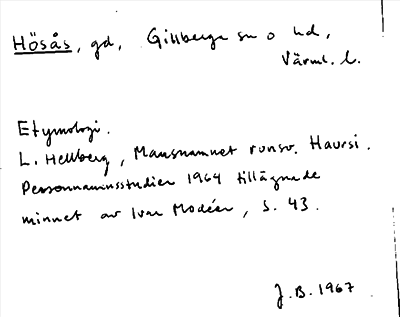 Hösås, gd, Gillberga sn o hd,
Värml. l.
Etymologi.
L. Hellberg, Mansnamnet runsv. Haursi.
Personnamnsstudier 1964 tillägnade
minnet av Ivar Modéer, s. 43.
J.B. 1967